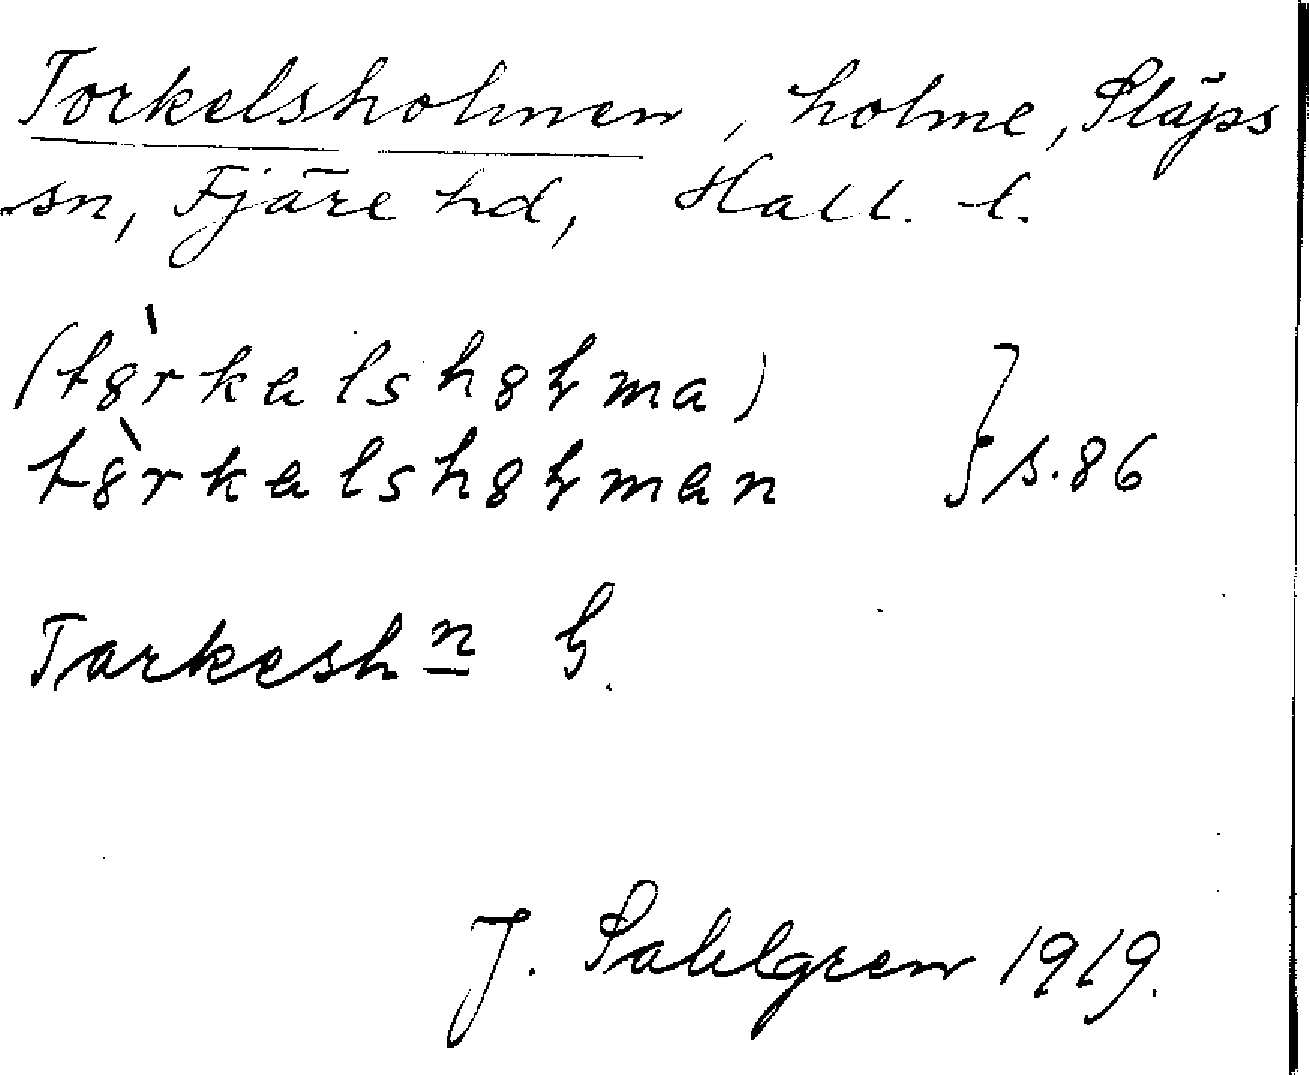 Torkelsholmen, holme, Släps
sn, Fjäre hd, Hall. l.
(tȣ̀rkəlshȣɫma)
tȣ̀rkəlshȣɫmən } s. 86
Tarkesh n G.
J. Sahlgren 1919.